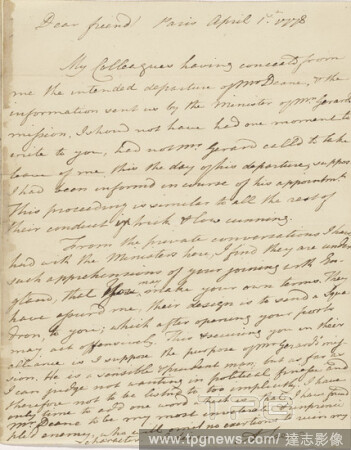 Dear friend! Paris April 1st. 1778
My Colleagues having conceald from
me the intended departure of Mr Deane, & the
information sent us by the Minister of Mr. Gerard's
mission, I should not have had one moment to
write to you, had not Mr. Gerard calld to take
leave of me, this the day of his departure, suppos
I had been informd in course of his appointmt
This proceeding is similar to all the rest of
their conduct trick & low cunning.
From the private conversations I have
had with the Ministers here, I find they are under
such apprehensions of your joining with En
gland, that you may make your own terms. They
have assurd me, their design is to send a Squa
dron to you; which after opening your ports
may act offensively. This & securing you in their
alliance is I suppose the purpose of Mr Gerard's mis
sion. He is a sensible & prudent man but as far as
I can judge not wanting in political finesse and
therefore not to be listend to too implicitly. I have
only time to add one word
Mr Deane to be my most
pled enemy, who will
character
www.tpgnews.com 達志影像